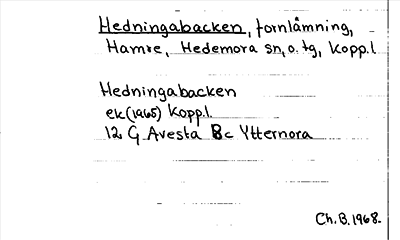 Hedningabacken, fornlämning,
Hamre, Hedemora sn, o. tg, Kopp.l.
Hedningabacken
ek (1965) Kopp.l.
12 G Avesta Bc Ytternora
Ch. B. 1968.